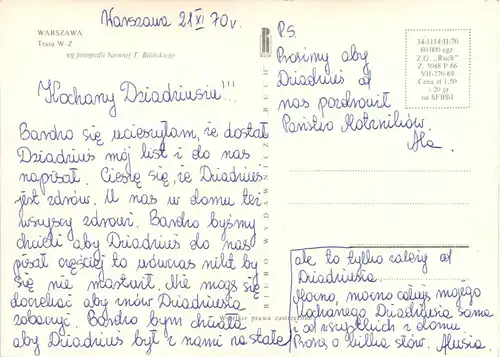 Warszawa 21 XI 70r.
WARSZAWA
Trasa W-Z
wg fotografii barwnej T. Bilińskiego
Kochany Dziadziusiu!!!
Bardzo się ucieszyłam, że dostał
Dziadziuś mój list i do nas
napisał. Cieszę się, że Dziadziuś
jest zdrów. U nas w domu też
wszyscy zdrowi. Bardzo byśmy
chcieli aby Dziadziuś do nas
pisał częściej to wówczas nikt by
się nie martwił. Nie mogę się
doczekać aby znów Dziadziusia
zobaczyć. Bardzo bym chciała
aby Dziadziuś był z nami na stałe
BIURO WYDAWNICZE „RUCH”
Wszelkie prawa zastrzeżone
P.S.
Prosimy aby
Dziadziuś od
nas pozdrowił
Państwo
Ala.
34-1114-II/70
60 000 egz.
Z.G. „Ruch"
Z. 5048 P. 66
VII-270-69
Cena zł 1,50
+ 20 gr
na SFBSiI
ale to tylko zależy od
Dziadziusia.
Mocno, mocno całuję mojego
Kochanego Dziadziusia sama
i od wszystkich z domu.
Proszę o kilka słów. Alusia